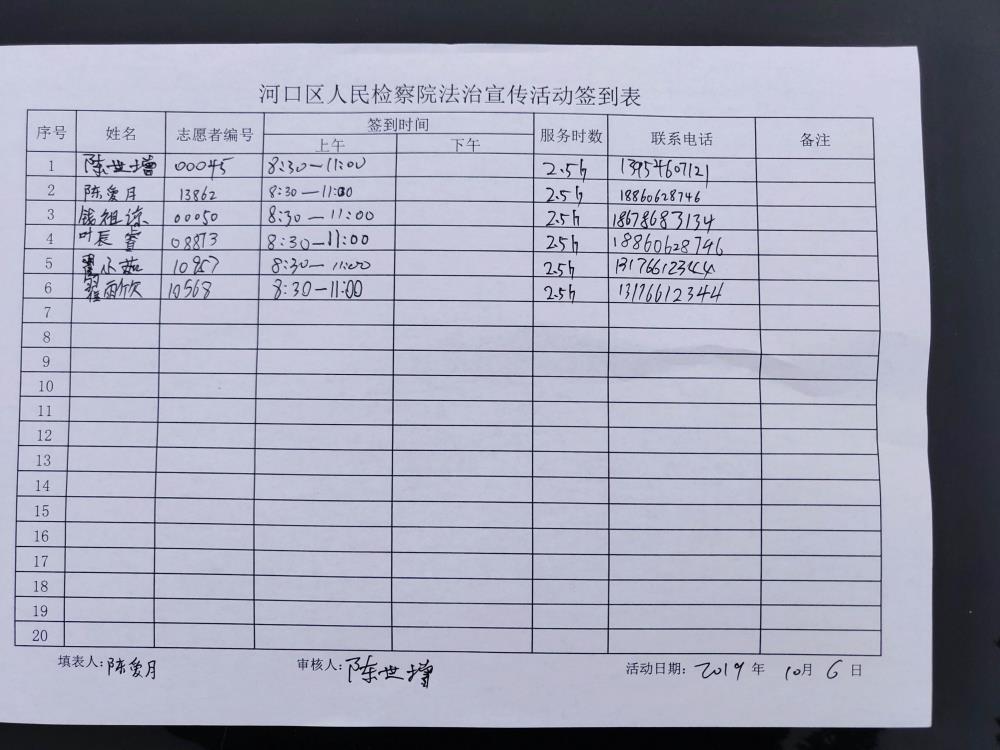 河口区人民检察院法治宣传活动签到表
序号 姓名 志愿者编号 签到时间 服务时数 联系电话 备注
上午 下午
1 陈世增 00045 8:30—11:00 2.5h 13954607121
2 陈爱月 13862 8:30—11:00 2.5h 18860628746
3 钱祖缐 00050 8:30—11:00 2.5h 18678683134
4 叶辰睿 08873 8:30—11:00 2.5h 18860628746
5 10957 8:30—11:00 2.5h 13176612344
6 翟雨欣 10568 8:30—11:00 2.5h 13176612344
7
8
9
10
11
12
13
14
15
16
17
18
19
20
填表人:陈爱月 审核人:陈世增 活动日期:2019年10月6日